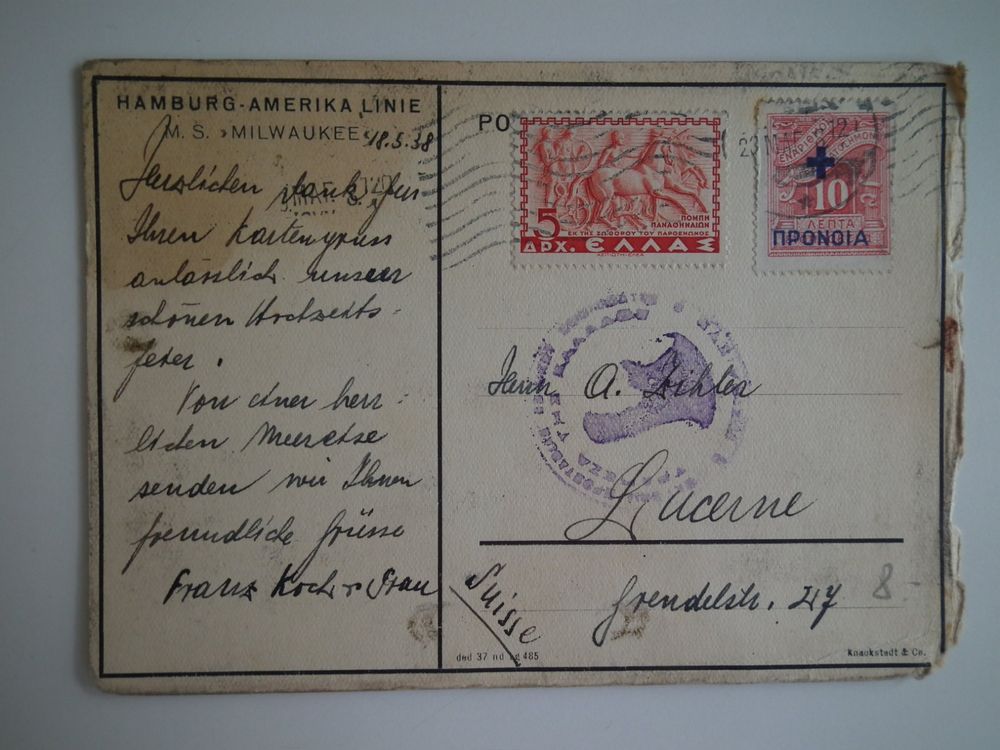 HAMBURG-AMERIKA LINIE
M. S. »MILWAUKEE«
18.5.38
Herzlichen Dank für
Ihren Kartengruss
anlässlich unserer
schönen Hochzeits-
feier.
Von einer herr-
lichen Meerreise
senden wir Ihnen
freundliche Grüsse
Franz Koch & Frau
PO
5
ΔΡΧ. ΕΛΛΑΣ
ΠΟΜΠΗ
ΠΑΝΑΘΗΝΑΙΩΝ
ΕΚ ΤΗΣ ΖΩΦΟΡΟΥ ΤΟΥ ΠΑΡΘΕΝΩΝΟΣ
23 ΜΑΪ
10
ΛΕΠΤΑ
ΠΡΟΝΟΙΑ
ΤΡΑΠΕΖΑ ΤΗΣ ΕΛΛΑΔΟΣ
Herrn A. Bihler
Lucerne
Grendelstr. 27
Suisse
8-
ded 37 nd 485
Knackstedt & Co.